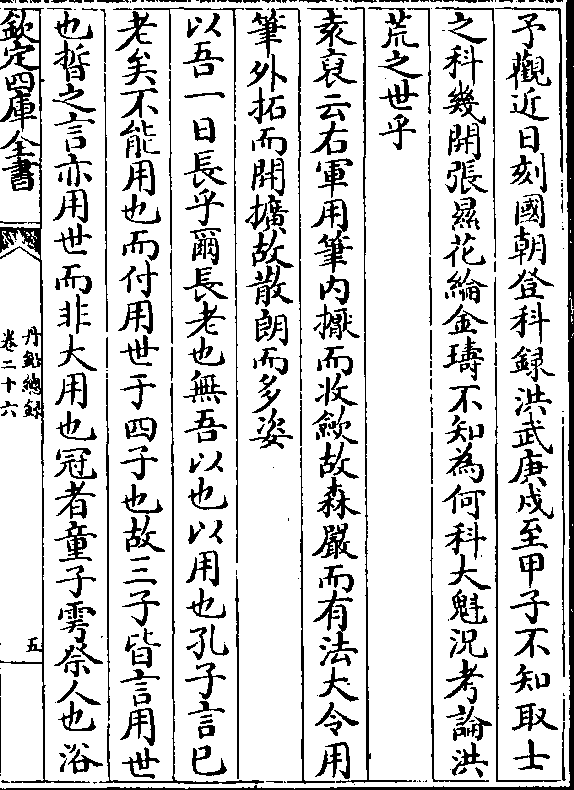 予觀近日刻國朝登科録洪武庚戍至甲子不知取士
之科幾開張顯花綸金璹不知為何科大魁況考論洪
荒之世乎
袁裒云右軍用筆内擫而收斂故森嚴而有法大令用
筆外拓而開擴故散朗而多姿
以吾一日長乎爾長老也無吾以也以用也孔子言已
老矣不能用也而付用世于四子也故三子皆言用世
也晳之言亦用世而非大用也冠者童子雩祭人也浴
欽定四庫全書
丹鉛總録
卷二十六
五